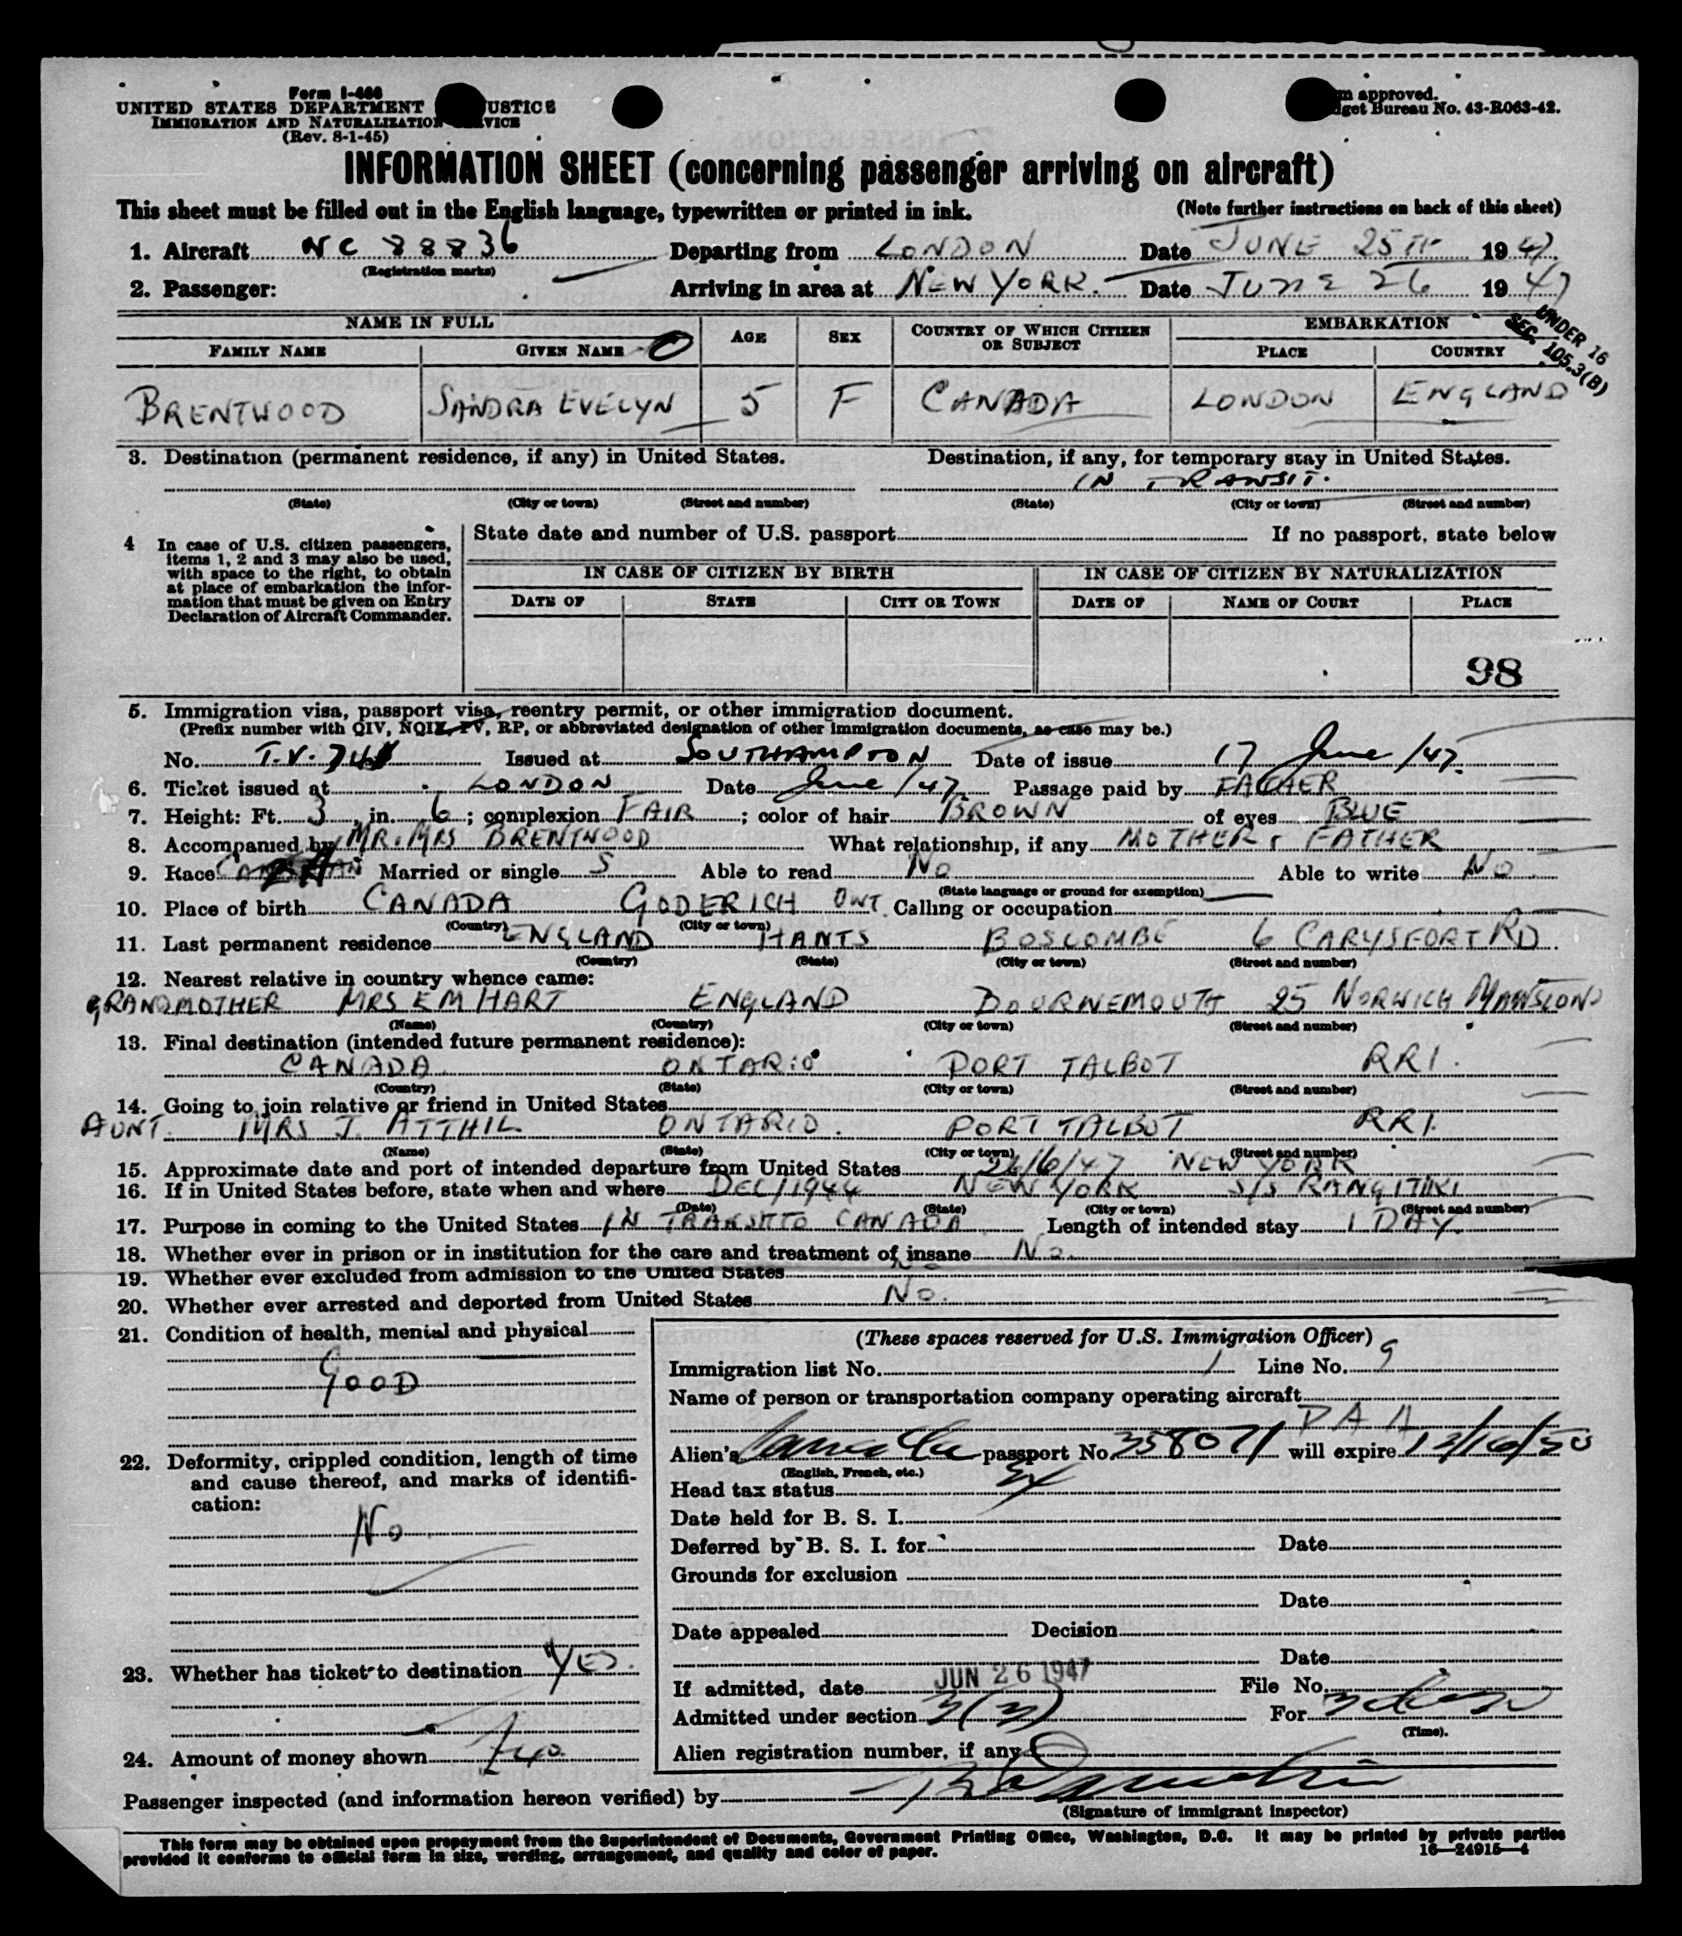 Form I-466
UNITED STATES DEPARTMENT USTICE
IMMIGRATION AND NATURALIZATION VICE
(Rev. 8-1-45)
m approved.
dget Bureau No. 43-R063-42.
INFORMATION SHEET (concerning passenger arriving on aircraft)
This sheet must be filled out in the English language, typewritten or printed in ink. (Note further instructions on back of this sheet)
1. Aircraft NC 88836 Departing from LONDON Date JUNE 25TH 1947
(Registration marks)
2. Passenger: Arriving in area at NEW YORK. Date JUNE 26 1947
UNDER 16
SEC. 105.3(B)
NAME IN FULL AGE SEX COUNTRY OF WHICH CITIZEN OR SUBJECT EMBARKATION
FAMILY NAME GIVEN NAME PLACE COUNTRY
BRENTWOOD SANDRA EVELYN 5 F CANADA LONDON ENGLAND
3. Destination (permanent residence, if any) in United States. Destination, if any, for temporary stay in United States.
IN TRANSIT.
(State) (City or town) (Street and number) (State) (City or town) (Street and number)
4 In case of U.S. citizen passengers, items 1, 2 and 3 may also be used, with space to the right, to obtain at place of embarkation the information that must be given on Entry Declaration of Aircraft Commander.
State date and number of U.S. passport If no passport, state below
IN CASE OF CITIZEN BY BIRTH IN CASE OF CITIZEN BY NATURALIZATION
DATE OF STATE CITY OR TOWN DATE OF NAME OF COURT PLACE
98
5. Immigration visa, passport visa, reentry permit, or other immigration document.
(Prefix number with QIV, NQIV, PV, RP, or abbreviated designation of other immigration documents, as case may be.)
No. T.V. 741 Issued at SOUTHAMPTON Date of issue 17 June /47.
6. Ticket issued at LONDON Date June /47 Passage paid by FATHER
7. Height: Ft. 3, in. 6; complexion FAIR; color of hair BROWN of eyes BLUE
8. Accompanied by MR. MRS BRENTWOOD What relationship, if any MOTHER & FATHER
9. Race Married or single S Able to read No Able to write No.
(State language or ground for exemption)
10. Place of birth CANADA GODERICH ONT. Calling or occupation
(Country) (City or town)
11. Last permanent residence ENGLAND HANTS BOSCOMBE 6 CARYSFORT RD.
(Country) (State) (City or town) (Street and number)
12. Nearest relative in country whence came:
GRANDMOTHER MRS E M HART ENGLAND BOURNEMOUTH 25 NORWICH MANSIONS
(Name) (Country) (City or town) (Street and number)
13. Final destination (intended future permanent residence):
CANADA. ONTARIO PORT TALBOT RR1.
(Country) (State) (City or town) (Street and number)
14. Going to join relative or friend in United States
AUNT. MRS J. ATTHIL ONTARIO. PORT TALBOT RR1.
(Name) (State) (City or town) (Street and number)
15. Approximate date and port of intended departure from United States 26/6/47 NEW YORK
16. If in United States before, state when and where DEC/1944 NEW YORK S/S RANGITIKI
(Date) (State) (City or town) (Street and number)
17. Purpose in coming to the United States IN TRANSIT TO CANADA Length of intended stay 1 DAY.
18. Whether ever in prison or in institution for the care and treatment of insane No.
19. Whether ever excluded from admission to the United States
20. Whether ever arrested and deported from United States No.
21. Condition of health, mental and physical
GOOD
22. Deformity, crippled condition, length of time and cause thereof, and marks of identification:
No
23. Whether has ticket to destination YES.
24. Amount of money shown
(These spaces reserved for U.S. Immigration Officer)
Immigration list No. 1 Line No. 9
Name of person or transportation company operating aircraft
PAA
Alien's passport No. 358071 will expire 12/16/50
(English, French, etc.)
Head tax status
Date held for B. S. I.
Deferred by B. S. I. for Date
Grounds for exclusion
Date
Date appealed Decision
Date
If admitted, date JUN 26 1947 File No.
Admitted under section 3(3) For 3 days
(Time).
Alien registration number, if any
Passenger inspected (and information hereon verified) by
(Signature of immigrant inspector)
This form may be obtained upon prepayment from the Superintendent of Documents, Government Printing Office, Washington, D.C. It may be printed by private parties
provided it conforms to official form in size, wording, arrangement, and quality and color of paper. 16—24915—4